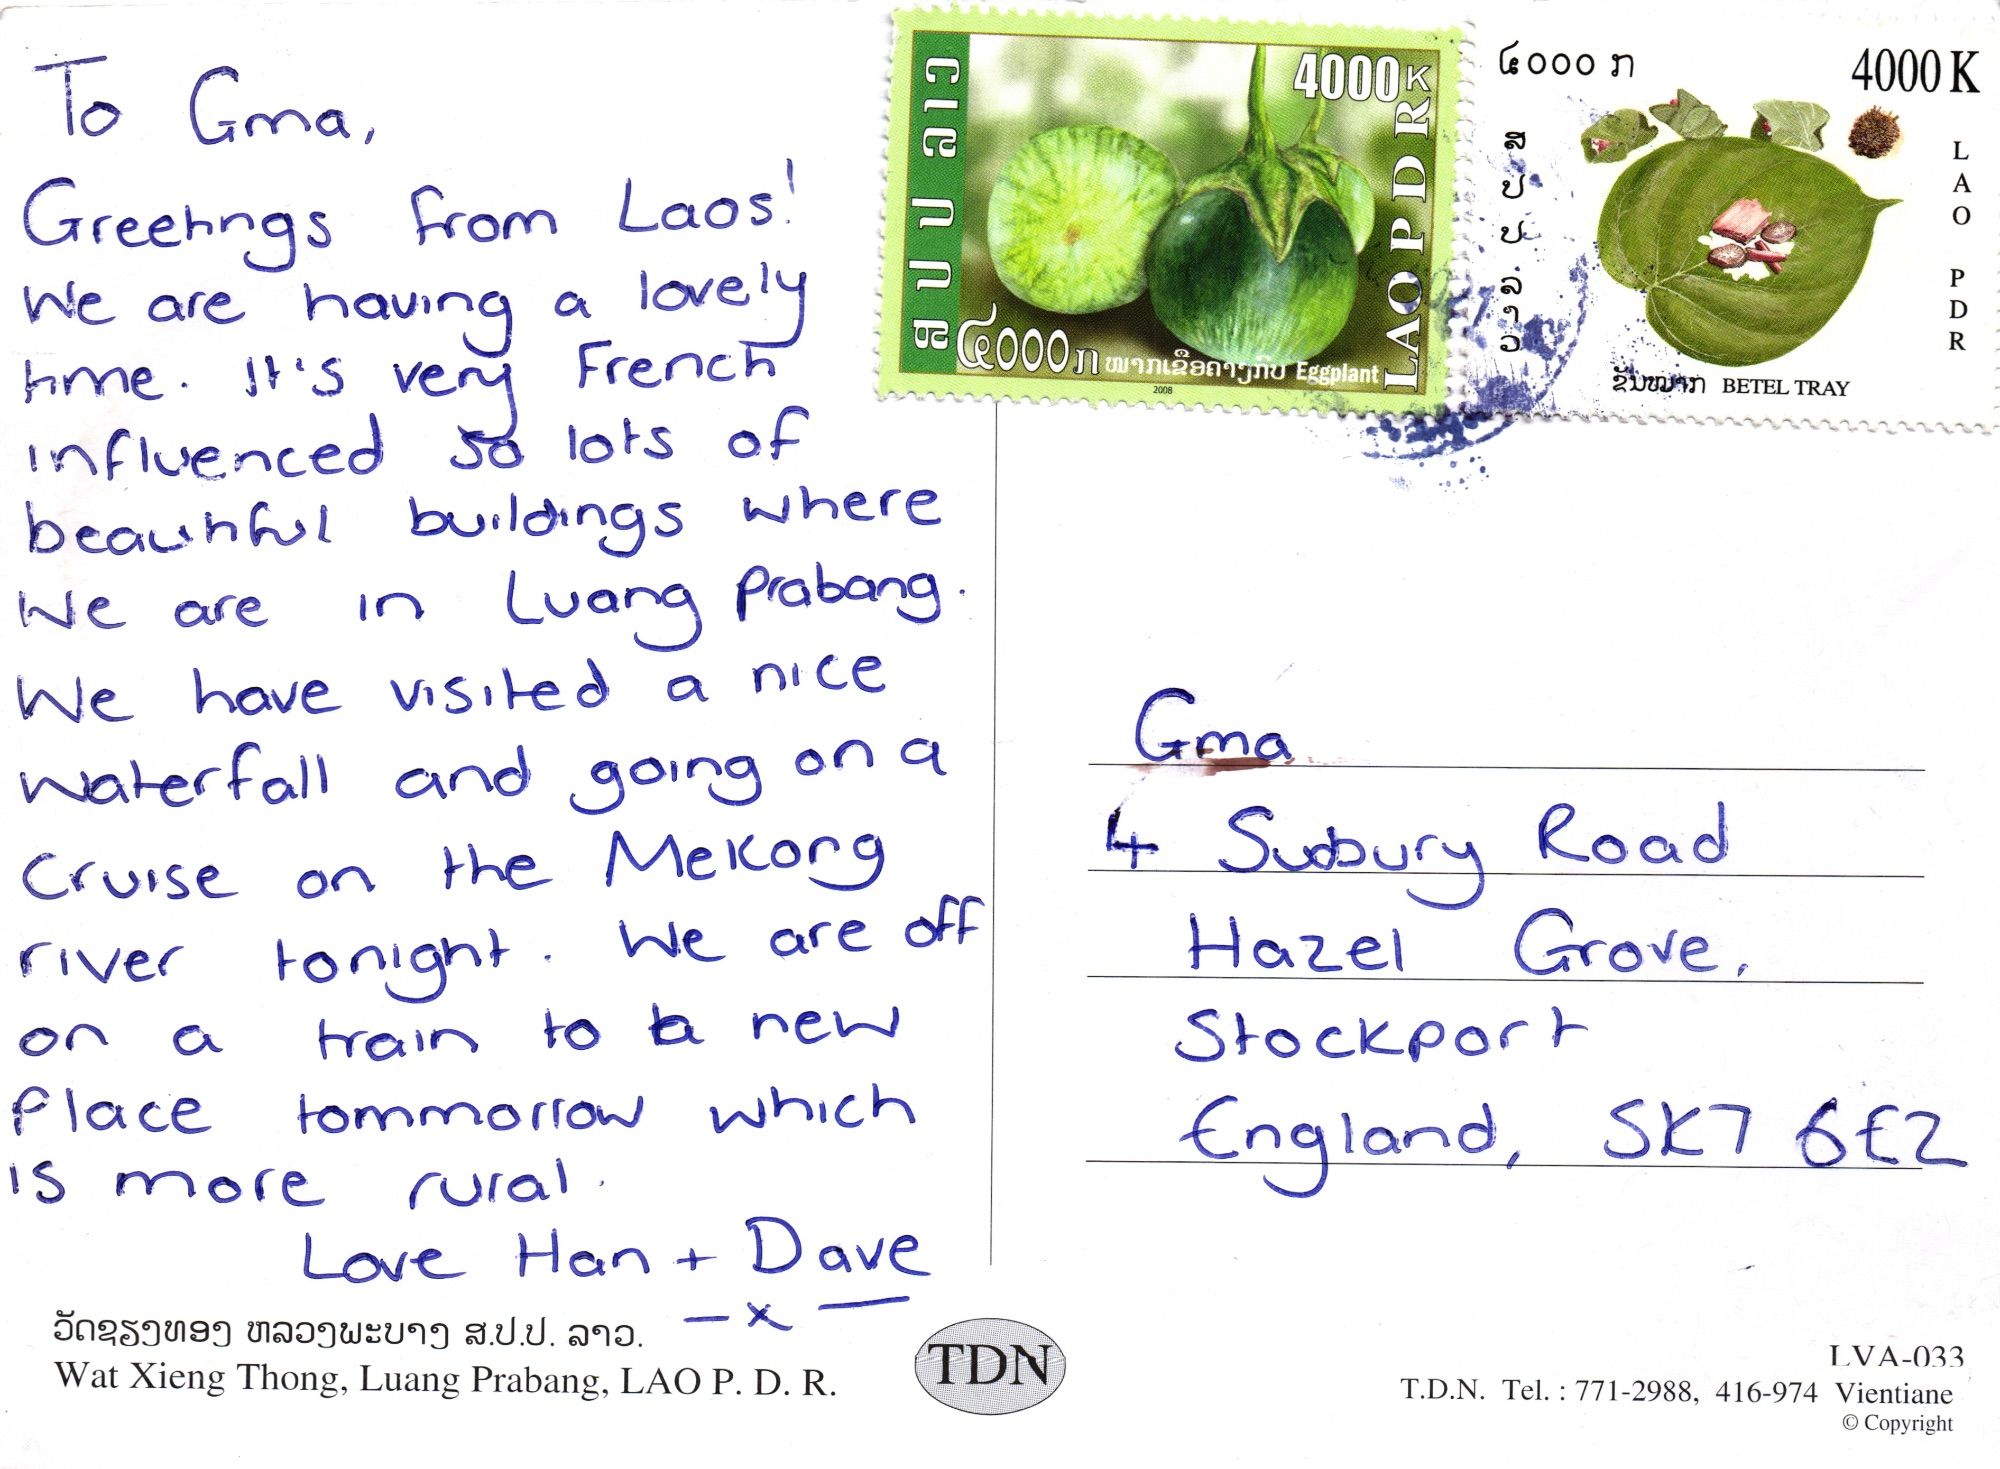 To Gma,
Greetings from Laos!
We are having a lovely
time. It's very French
influenced so lots of
beautiful buildings where
We are in Luang Prabang.
We have visited a nice
waterfall and going on a
cruise on the Mekong
river tonight. We are off
on a train to a new
place tommorrow which
is more rural.
Love Han + Dave
x
ວັດຊຽງທອງ ຫລວງພະບາງ ສ.ປ.ປ. ລາວ.
Wat Xieng Thong, Luang Prabang, LAO P. D. R.
TDN
ສ ປ ປ ລາວ
4000K
LAO P D R
໔໐໐໐ ກ
ໝາກເຂືອຄາງກົບ Eggplant
2008
໔໐໐໐ ກ
4000 K
ສ ປ ປ ລາວ
LAO PDR
ຂັນໝາກ BETEL TRAY
Gma
4 Sudbury Road
Hazel Grove,
Stockport
England, SK7 6EZ
LVA-033
T.D.N. Tel. : 771-2988, 416-974 Vientiane
© Copyright